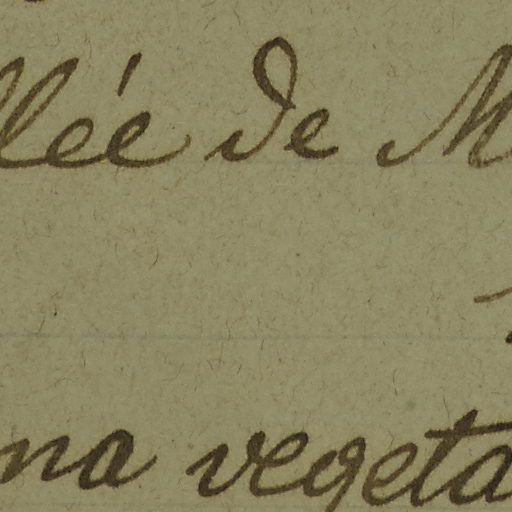 llée de M
na vegeta